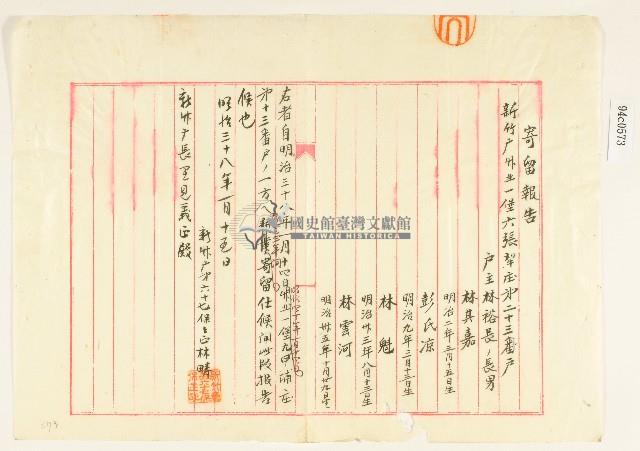 寄留報告
新竹庁竹北一堡六張犁庄第二十三番戸
戸主林裕長ノ長男
林其嘉
明治二年三月十五日生
彭氏凉
明治九年三月十三日生
林魁
明治卅三年八月十三日生
林雲河
明治卅五年十月廿九日生
右者自明治三十年一月十四日竹北一堡九甲埔庄
第十三番戸ノ一方ヘ 寄留仕候間此段報告
候也
明治三十八年一月十五日
新竹庁第六十七保保正林晴
新竹庁長里見義正殿
國史館臺灣文獻館
TAIWAN HISTORICA
94c0573